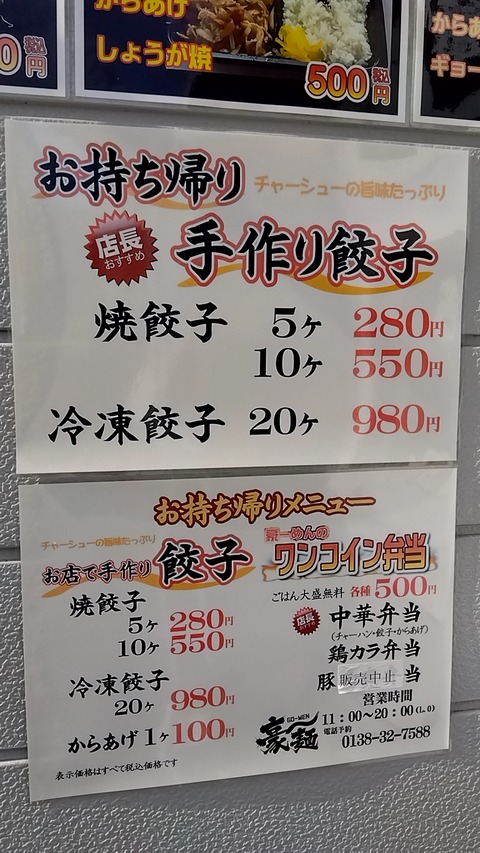 からあげ
しょうが焼
500円
税込
0円
税込
から
ギョー
お持ち帰り
チャーシューの旨味たっぷり
店長
おすすめ
手作り餃子
焼餃子 5ヶ 280円
10ヶ 550円
冷凍餃子 20ヶ 980円
お持ち帰りメニュー
チャーシューの旨味たっぷり
お店で手作り 餃子
焼餃子
5ヶ 280円
10ヶ 550円
冷凍餃子
20ヶ 980円
からあげ 1ヶ 100円
表示価格はすべて税込価格です
豪ーめんの
ワンコイン弁当
ごはん大盛無料 各種 500円
店長
中華弁当
(チャーハン・餃子・からあげ)
鶏カラ弁当
豚 販売中止 当
営業時間
11:00〜20:00(L.O)
電話予約 0138-32-7588
GO-MEN
豪麺